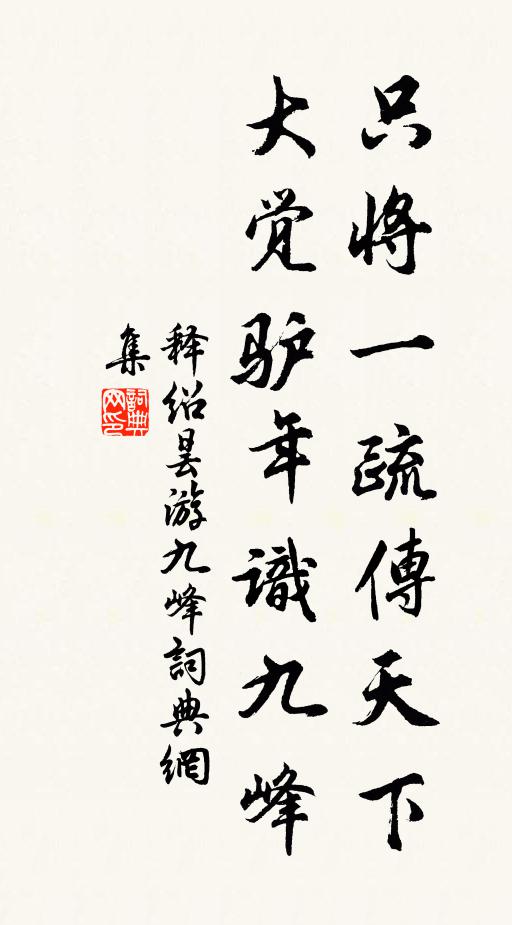 只将一疏傳天下
大觉驴年識九峰
释绍昙游九峰詞典網
集
詞典
网印